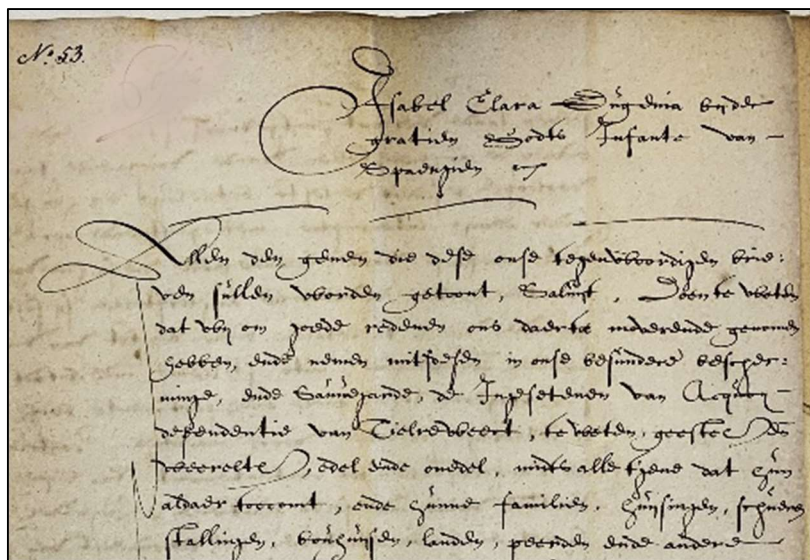 N.º 53.
Isabel Clara Eugenia bijder
gratien Godts Infante van
Spaengien etc
Allen den genen die dese onse tegenwoordigen brie:
ven sullen worden getoont, Saluijt, Doen te weten
dat wij om goede redenen ons daertoe moverende genomen
hebben, ende nemen mitsdesen in onse besundere bescher:
minge, ende Sauvegarde, de Ingesetenen van Acquoij
dependentie van Tielreweert, te weten, geestel. en
weerelte, edel ende onedel, mits alle tgene dat hun
aldaer toecomt, ende hunne familien, huijsingen, schueren
stallingen, bouhuijsen, landen, peerden ende andere